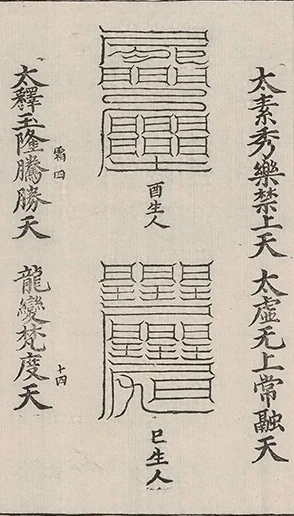 太素秀樂禁上天 太虛无上常融天
酉生人
巳生人
太釋玉隆騰勝天 龍變梵度天
霜四 十四